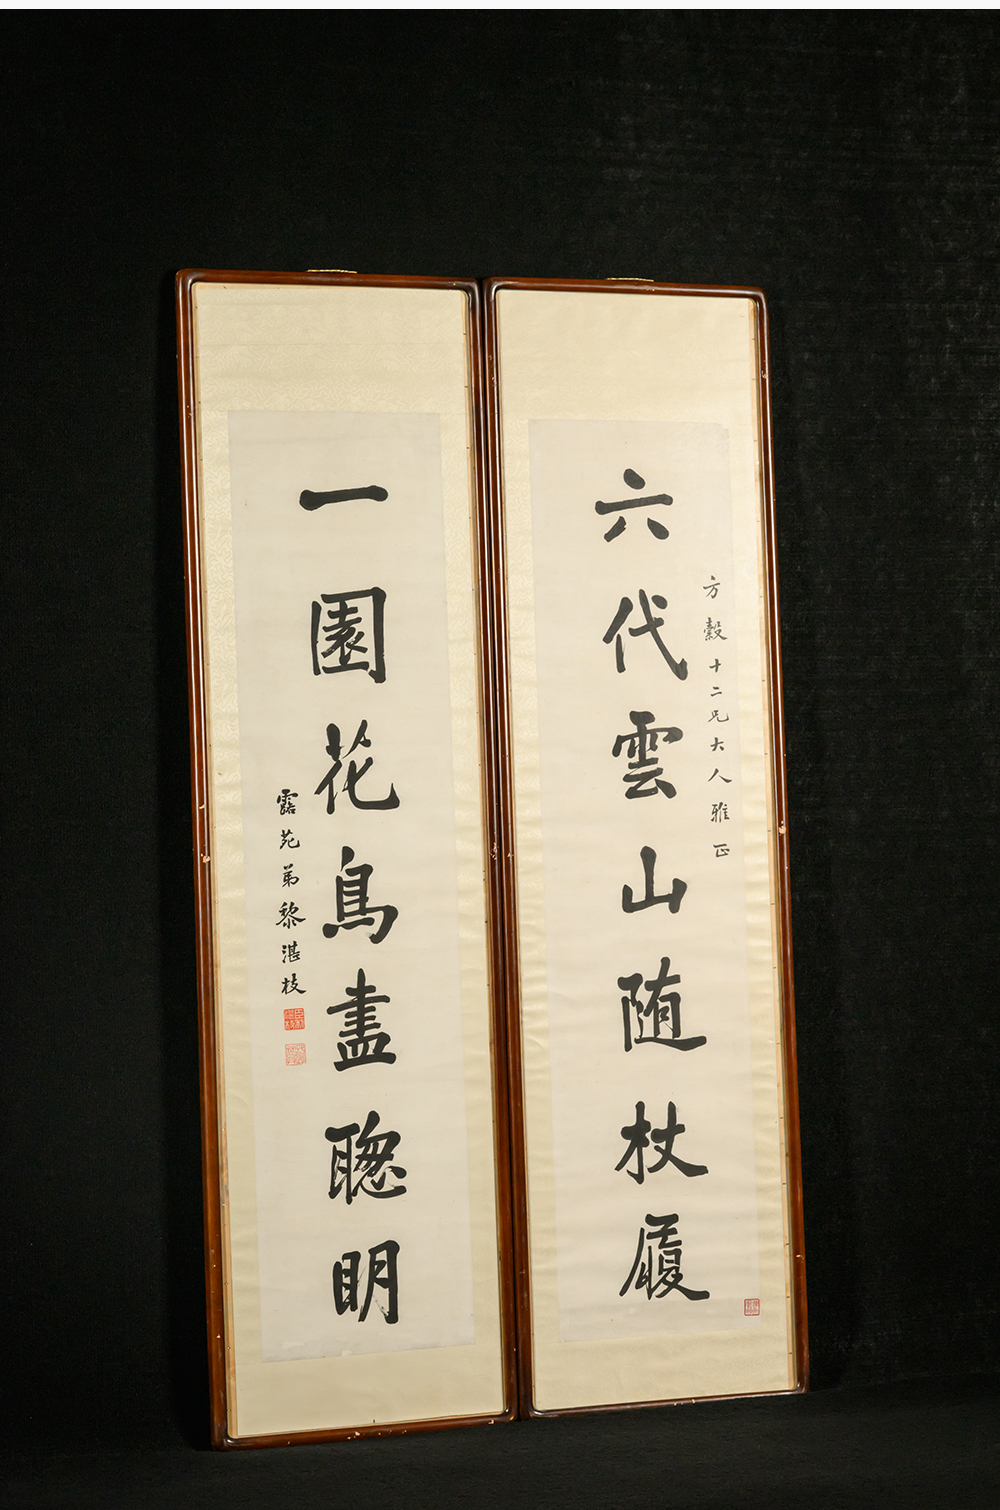 六代雲山随杖履
方縠十二兄大人雅正
一園花鳥盡聰明
露苑弟黎湛枝